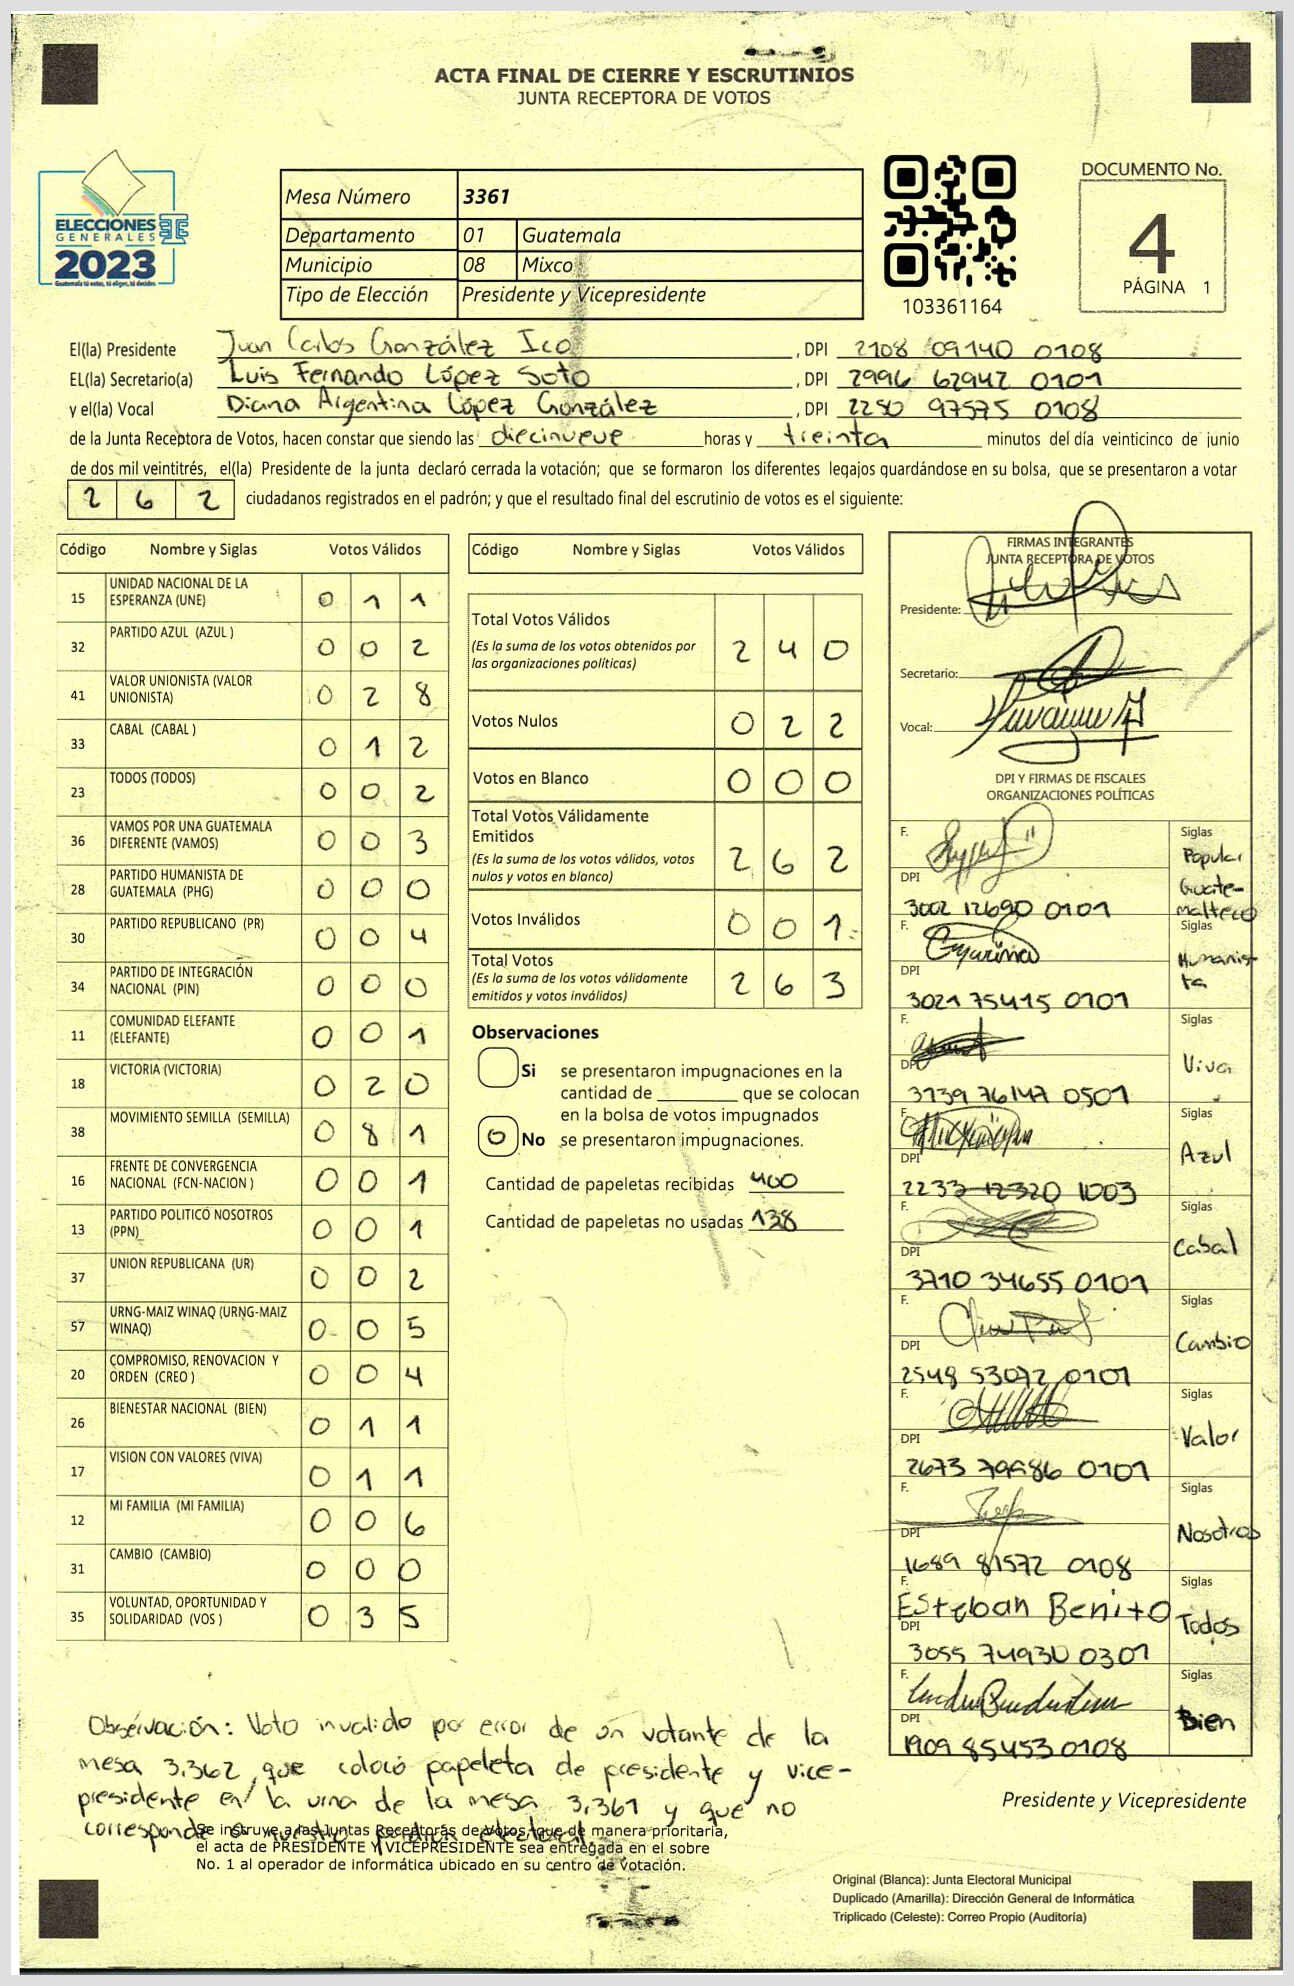 ACTA FINAL DE CIERRE Y ESCRUTINIOS
JUNTA RECEPTORA DE VOTOS
ELECCIONES
GENERALES
2023
Guatemala tú votas, tú eliges, tú decides
Mesa Número 3361
Departamento 01 Guatemala
Municipio 08 Mixco
Tipo de Elección Presidente y Vicepresidente
103361164
DOCUMENTO No.
4
PÁGINA 1
El(la) Presidente Juan Carlos González Ico , DPI 2108 09140 0108
EL(la) Secretario(a) Luis Fernando López Soto , DPI 2996 62942 0101
y el(la) Vocal Diana Argentina López González , DPI 2250 97575 0108
de la Junta Receptora de Votos, hacen constar que siendo las diecinueve horas y treinta minutos del día veinticinco de junio
de dos mil veintitrés, el(la) Presidente de la junta declaró cerrada la votación; que se formaron los diferentes legajos guardándose en su bolsa, que se presentaron a votar
2 6 2 ciudadanos registrados en el padrón; y que el resultado final del escrutinio de votos es el siguiente:
Código Nombre y Siglas Votos Válidos
15 UNIDAD NACIONAL DE LA ESPERANZA (UNE) 0 1 1
32 PARTIDO AZUL (AZUL ) 0 0 2
41 VALOR UNIONISTA (VALOR UNIONISTA) 0 2 8
33 CABAL (CABAL ) 0 1 2
23 TODOS (TODOS) 0 0 2
36 VAMOS POR UNA GUATEMALA DIFERENTE (VAMOS) 0 0 3
28 PARTIDO HUMANISTA DE GUATEMALA (PHG) 0 0 0
30 PARTIDO REPUBLICANO (PR) 0 0 4
34 PARTIDO DE INTEGRACIÓN NACIONAL (PIN) 0 0 0
11 COMUNIDAD ELEFANTE (ELEFANTE) 0 0 1
18 VICTORIA (VICTORIA) 0 2 0
38 MOVIMIENTO SEMILLA (SEMILLA) 0 8 1
16 FRENTE DE CONVERGENCIA NACIONAL (FCN-NACION ) 0 0 1
13 PARTIDO POLITICO NOSOTROS (PPN) 0 0 1
37 UNION REPUBLICANA (UR) 0 0 2
57 URNG-MAIZ WINAQ (URNG-MAIZ WINAQ) 0 0 5
20 COMPROMISO, RENOVACION Y ORDEN (CREO ) 0 0 4
26 BIENESTAR NACIONAL (BIEN) 0 1 1
17 VISION CON VALORES (VIVA) 0 1 1
12 MI FAMILIA (MI FAMILIA) 0 0 6
31 CAMBIO (CAMBIO) 0 0 0
35 VOLUNTAD, OPORTUNIDAD Y SOLIDARIDAD (VOS ) 0 3 5
Código Nombre y Siglas Votos Válidos
Total Votos Válidos 2 4 0
(Es la suma de los votos obtenidos por
las organizaciones políticas)
Votos Nulos 0 2 2
Votos en Blanco 0 0 0
Total Votos Válidamente
Emitidos 2 6 2
(Es la suma de los votos válidos, votos
nulos y votos en blanco)
Votos Inválidos 0 0 1
Total Votos 2 6 3
(Es la suma de los votos válidamente
emitidos y votos inválidos)
Observaciones
Si se presentaron impugnaciones en la
cantidad de que se colocan
en la bolsa de votos impugnados
0 No se presentaron impugnaciones.
Cantidad de papeletas recibidas 400
Cantidad de papeletas no usadas 138
FIRMAS INTEGRANTES
JUNTA RECEPTORA DE VOTOS
Presidente:
Secretario:
Vocal:
DPI Y FIRMAS DE FISCALES
ORGANIZACIONES POLÍTICAS
F. Siglas Popular Guatemalteco
DPI 3002 12690 0101
F. Siglas Humanista
DPI 3021 75415 0101
F. Siglas Viva
DPI 3139 76147 0501
F. Siglas Azul
DPI 2233 12320 1003
F. Siglas Cabal
DPI 3710 34655 0101
F. Siglas Cambio
DPI 2548 53072 0101
F. Siglas Valor
DPI 2673 79986 0101
F. Siglas Nosotros
DPI 1689 81572 0108
F. Esteban Benito Siglas Todos
DPI 3055 74930 0301
F. Siglas Bien
DPI 1909 85453 0108
Presidente y Vicepresidente
Observación: Voto invalido por error de un votante de la
mesa 3,362, que colocó papeleta de presidente y vice-
presidente en la urna de la mesa 3,361 y que no
corresponde a nuestro padrón electoral.
Se instruye a las Juntas Receptoras de Votos, que de manera prioritaria,
el acta de PRESIDENTE Y VICEPRESIDENTE sea entregada en el sobre
No. 1 al operador de informática ubicado en su centro de votación.
Original (Blanca): Junta Electoral Municipal
Duplicado (Amarilla): Dirección General de Informática
Triplicado (Celeste): Correo Propio (Auditoría)